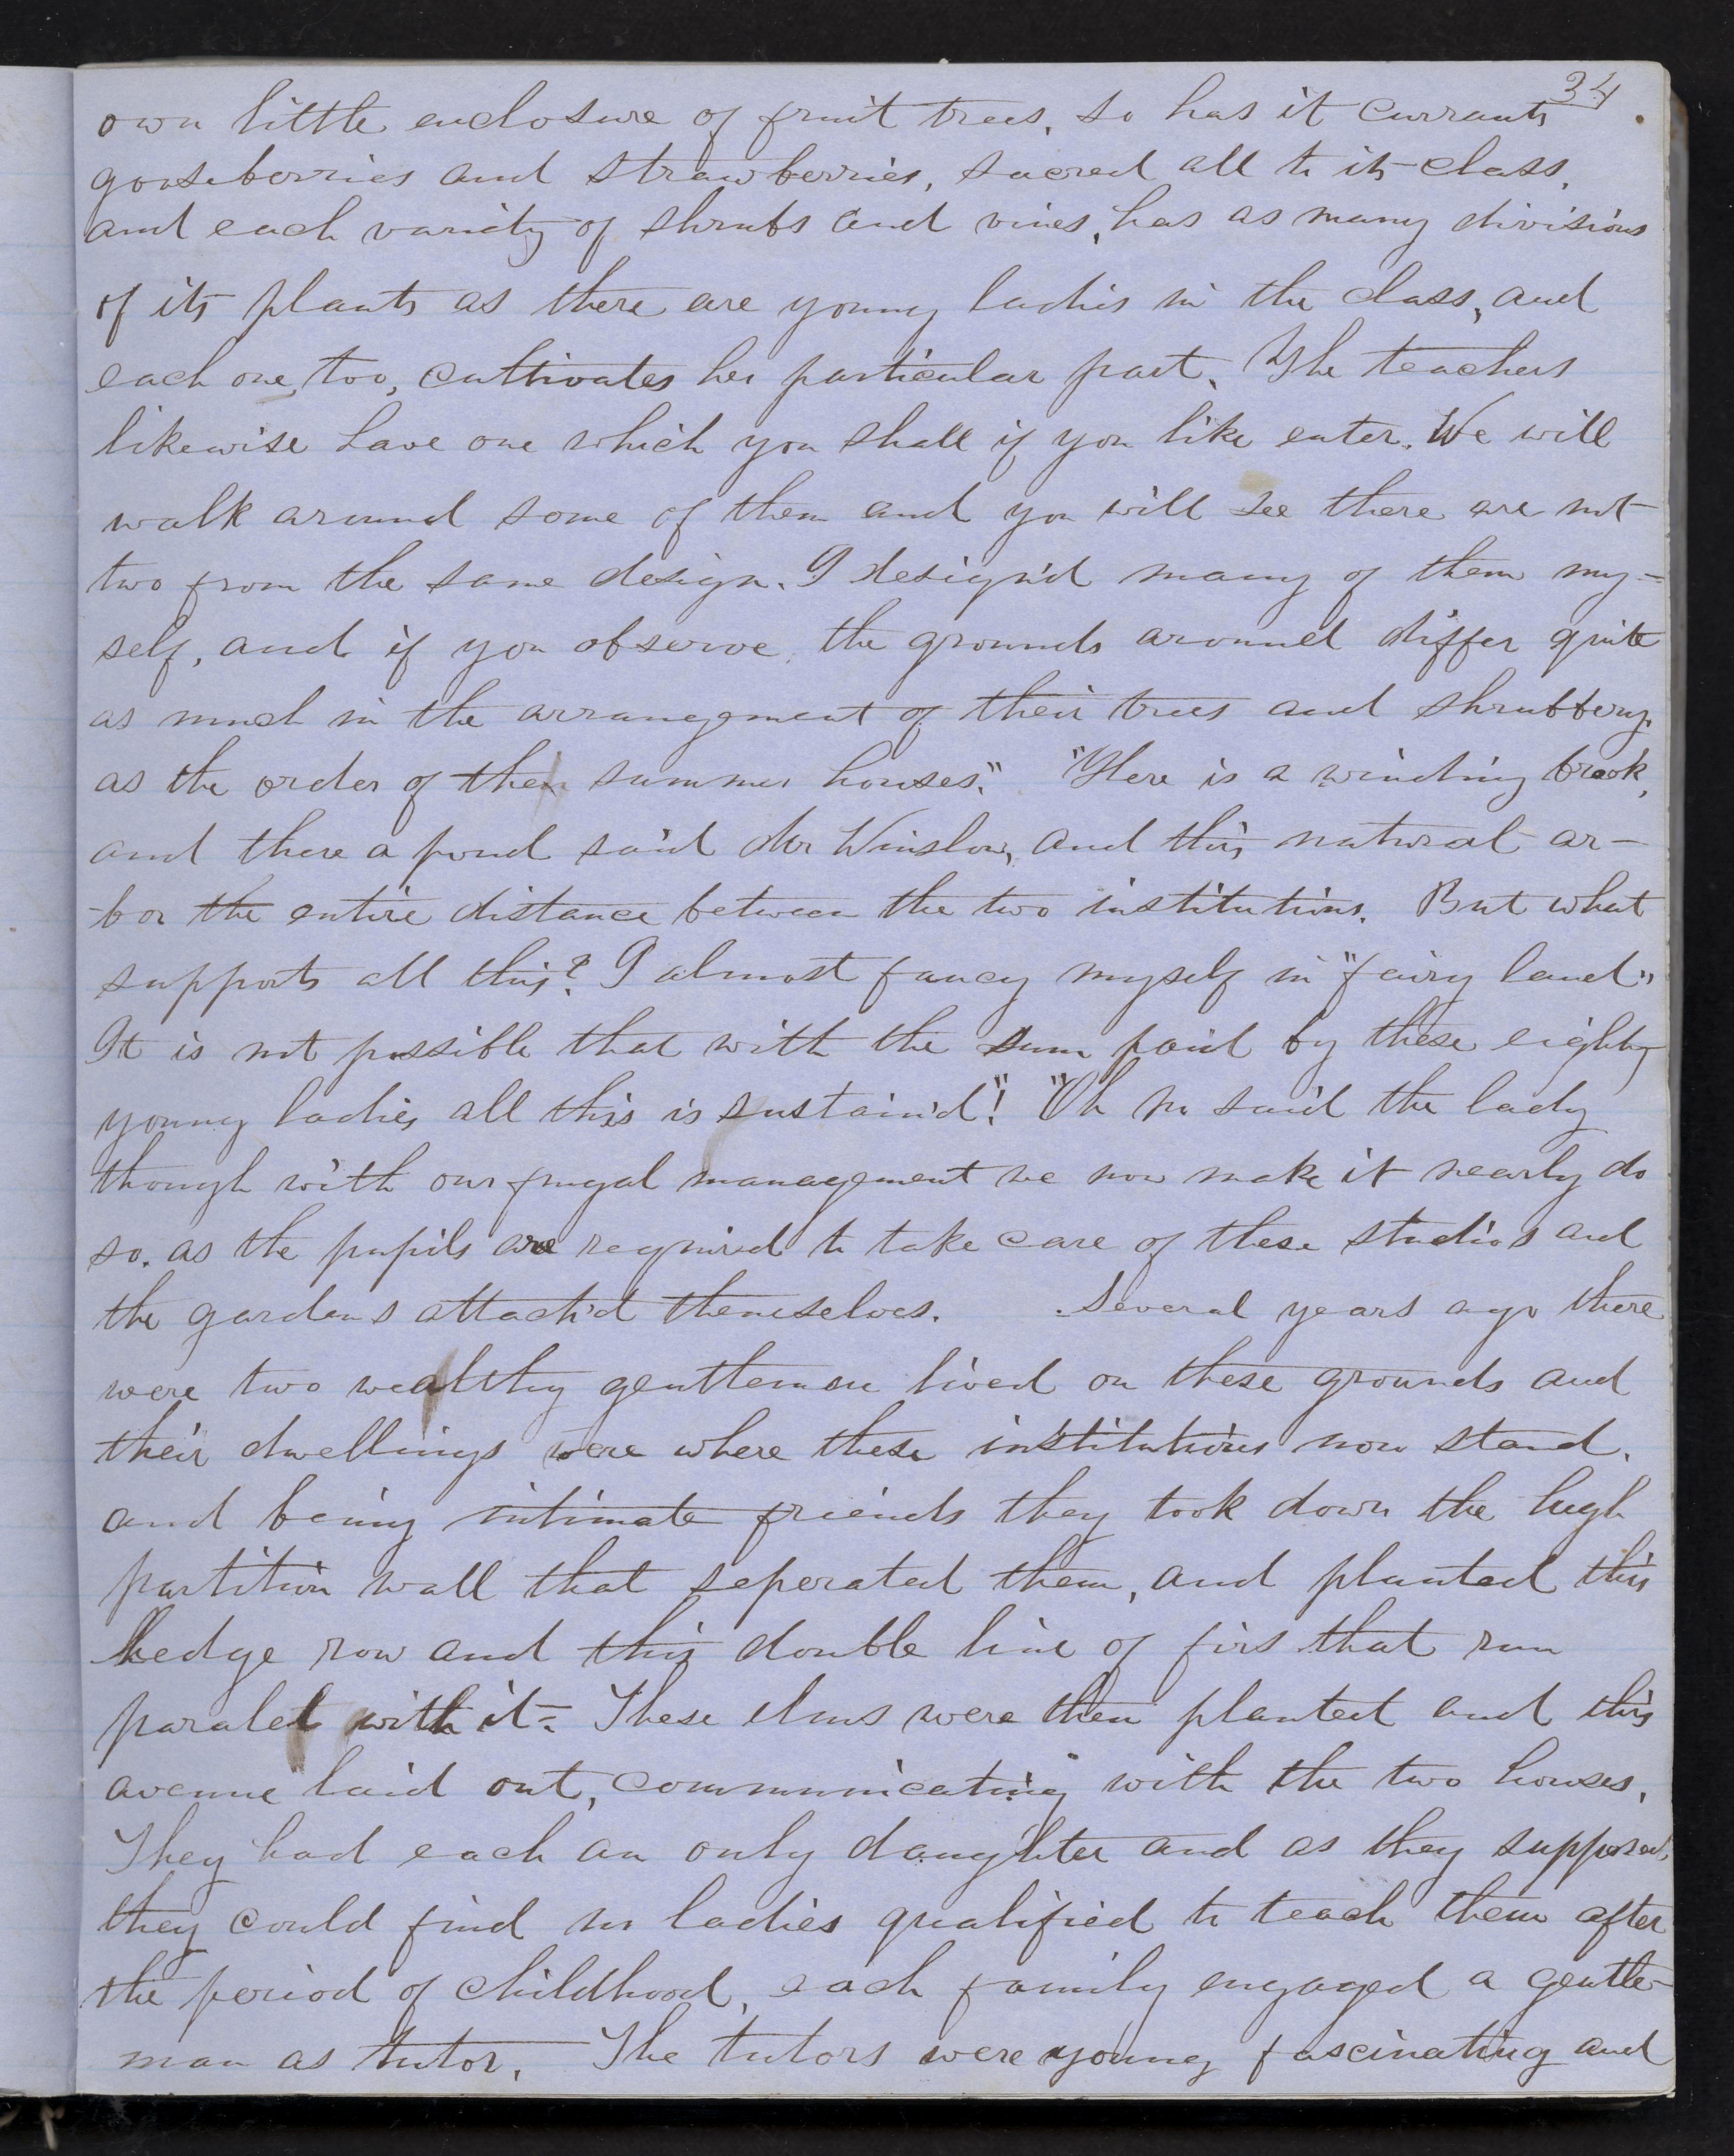 34.
own little enclosure of fruit trees, so has it currants
gooseberries and strawberries, sacred all to its class,
and each variety of shrubs and vines, has as many divisions
of its plants as there are young ladies in the class, and
each one, too, cultivates her particular part. The teachers
likewise have one which you shall if you like enter. We will
walk around some of them and you will see there are not
two from the same design. I design'd many of them my-
self, and if you observe, the grounds around differ quite
as much in the arrangement of their trees and shrubbery,
as the order of their summer houses." "Here is a winding brook,
and there a pond said Mr Winslow, and this natural ar-
-bor the entire distance between the two institutions. But what
supports all this? I almost fancy myself in "fairy land"
It is not possible that with the sum paid by these eighty
young ladies all this is sustain'd"! "Oh no said the lady
though with our frugal management we now make it nearly do
so. as the pupils are required to take care of these studios and
the gardens attach'd themselves. Several years ago there
were two wealthy gentlemen lived on these grounds and
their dwellings were where these institutions now stand.
and being intimate friends they took down the high
partition wall that seperated them, and planted this
hedge row and this double line of firs that run
paralel with it- These elms were then planted and this
avenue laid out, communicating with the two houses.
They had each an only daughter and as they supposed,
they could find no ladies qualified to teach them after
the period of childhood, each family engaged a gentle-
man as tutor. The tutors were young fascinating and